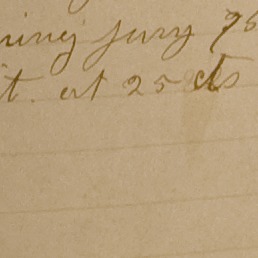 ning jury 75
t. at 25 cts